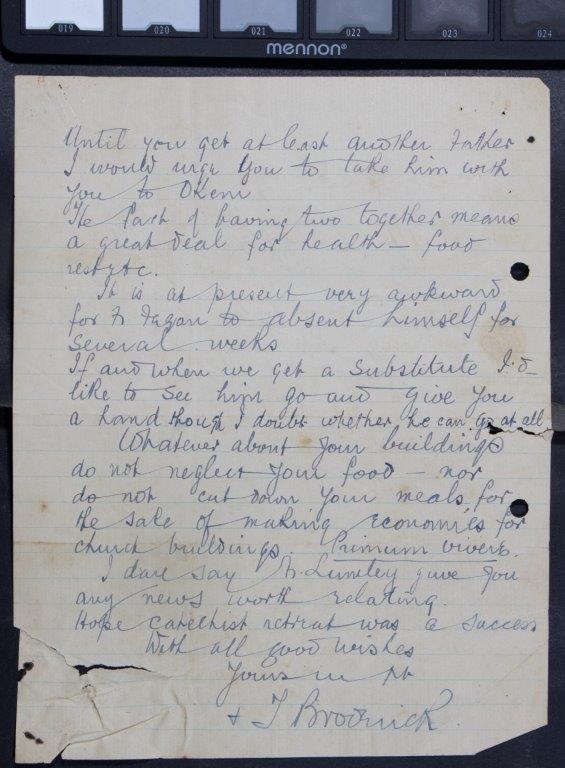 019 020 021 022 023 024
mennon®
Until you get at least another Father
I would urge you to take him with
you to Okem
The fact of having two together means
a great deal for health – food
rest etc.
It is at present very awkward
for Fr Fagan to absent himself for
several weeks
If and when we get a substitute I'd
like to see him go and give you
a hand though I doubt whether he can go at all
Whatever about your buildings
do not neglect your food – nor
do not cut down your meals for
the sake of making economies for
church buildings. Primum vivere.
I dare say Fr. Lumley gave you
any news worth relating.
Hope catechist retreat was a success
With all good wishes
Yours in
+ T Broderick.